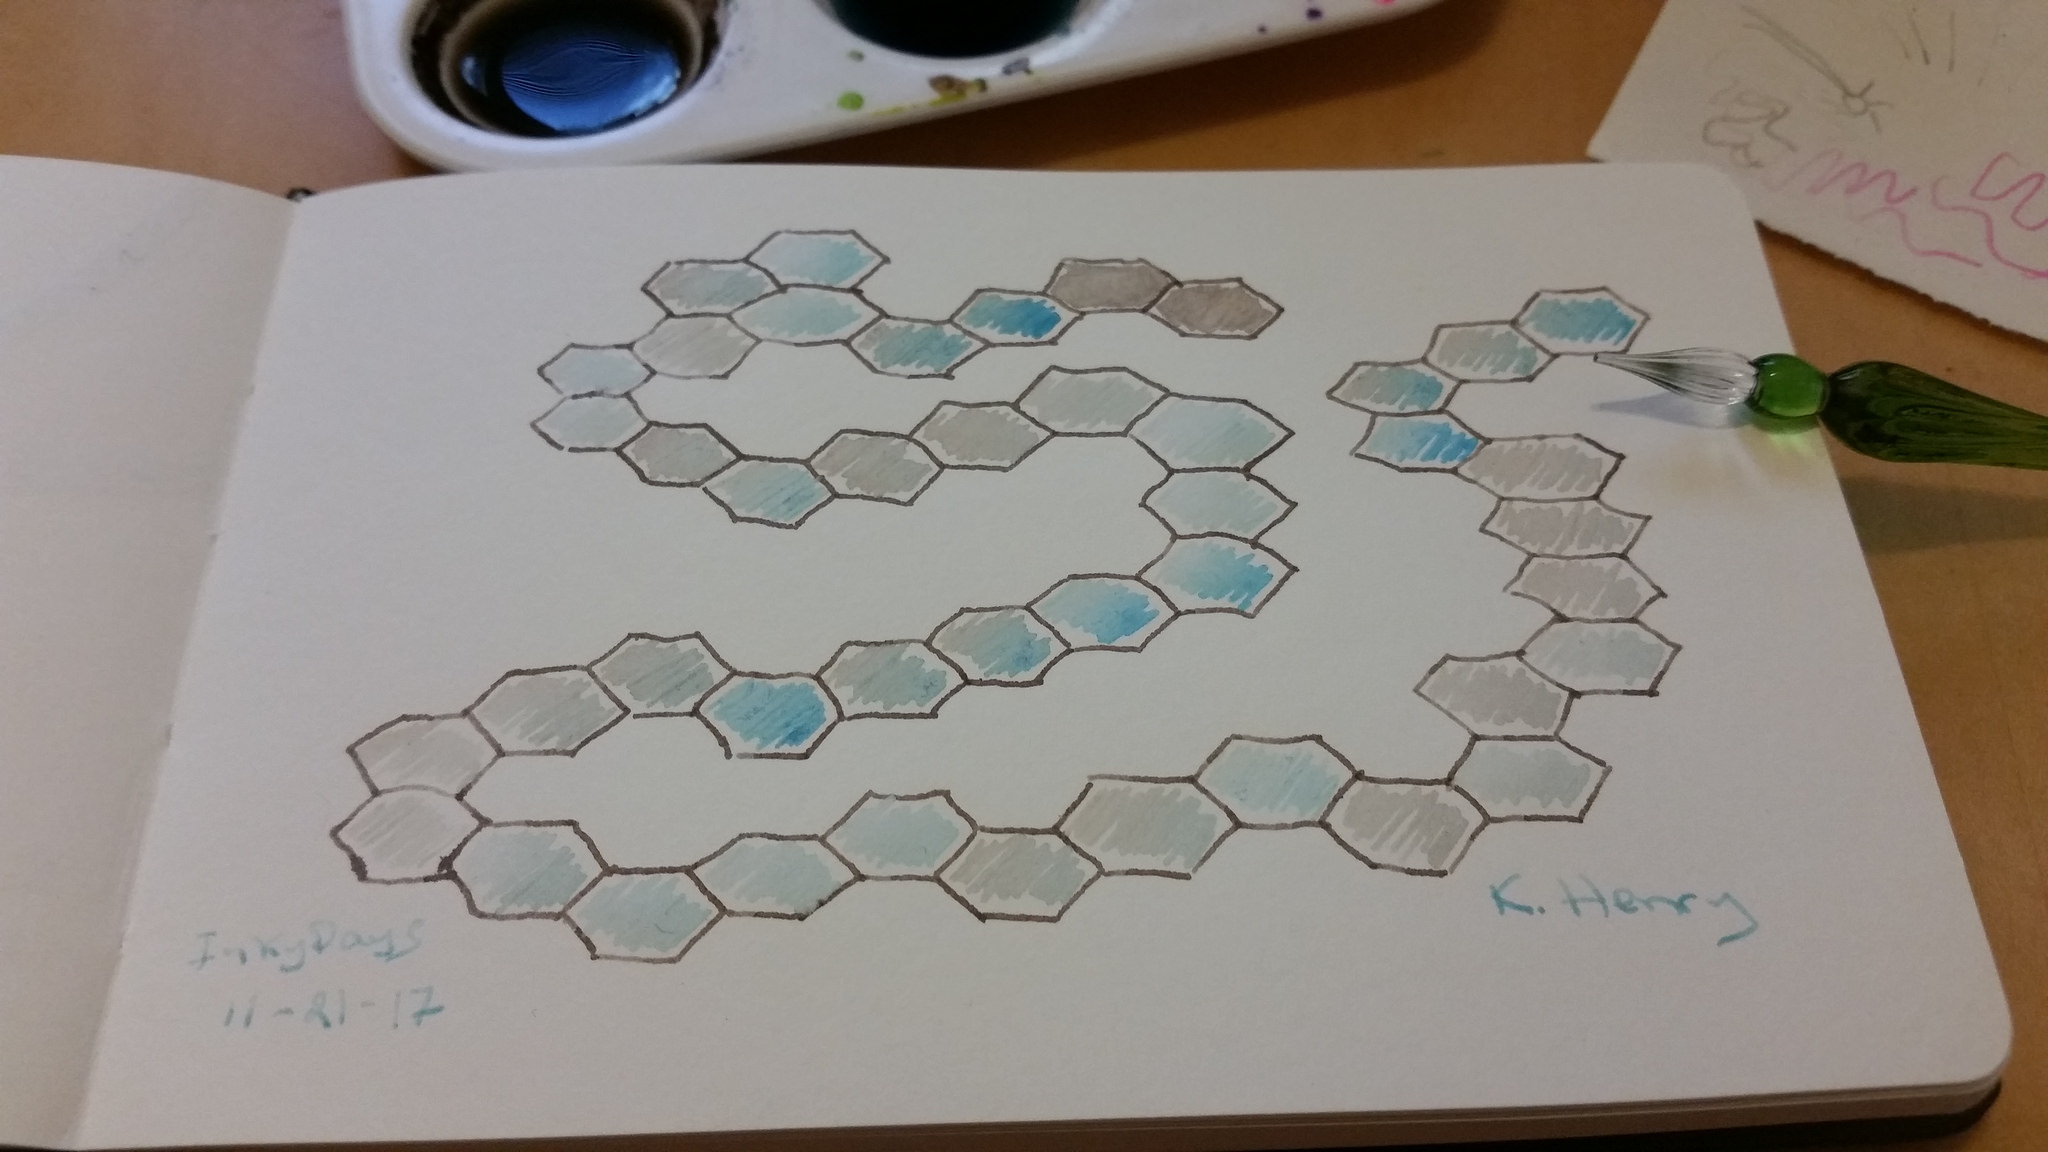 InkyDays
11-21-17
K. Henry